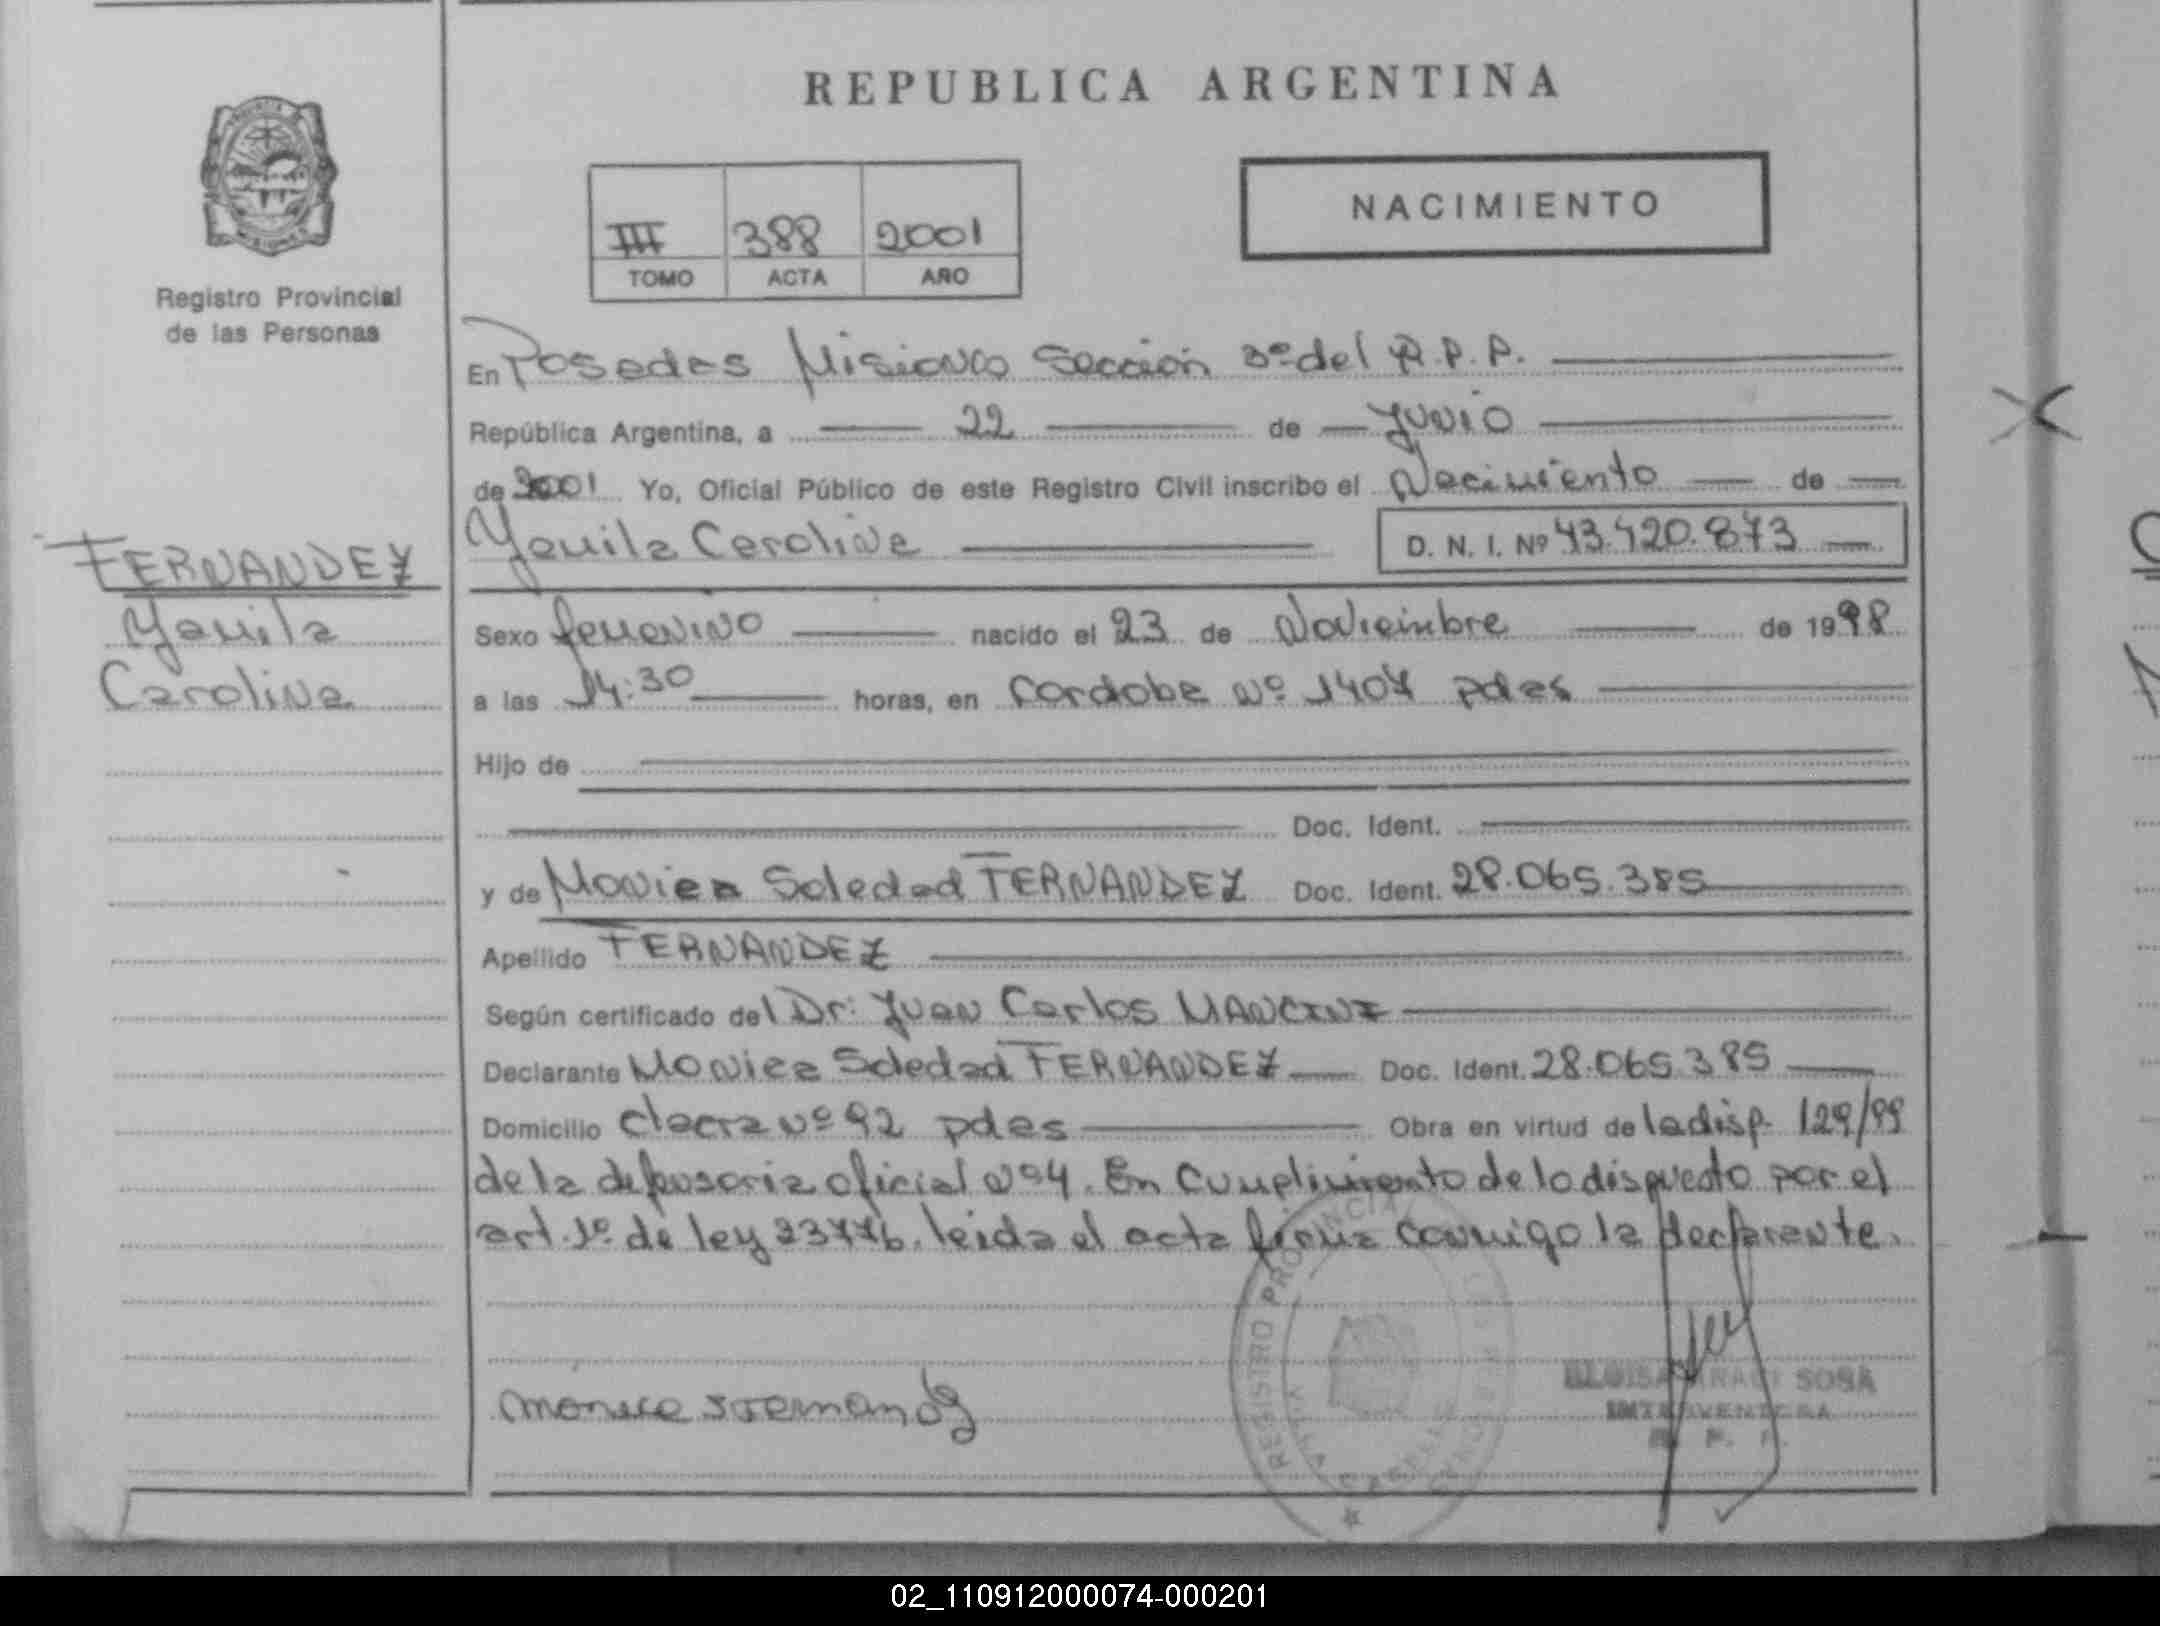 REPUBLICA ARGENTINA
NACIMIENTO
III 388 2001
TOMO ACTA AÑO
Registro Provincial
de las Personas
En Posadas Misiones Sección 3º del R.P.P.
República Argentina, a 22 de Junio
de 2001 Yo, Oficial Público de este Registro Civil inscribo el Nacimiento de
Yamila Carolina D. N. I. Nº 43.420.873
FERNANDEZ
Yamila
Carolina
Sexo femenino nacido el 23 de Noviembre de 1998
a las 14:30 horas, en Cordoba Nº 1407 pdas
Hijo de
Doc. Ident.
y de Monica Soledad FERNANDEZ Doc. Ident. 28.065.385
Apellido FERNANDEZ
Según certificado del Dr: Juan Carlos MANCINI
Declarante Monica Soledad FERNANDEZ Doc. Ident. 28.065.385
Domicilio chacra Nº 92 pdas Obra en virtud de la disp. 129/99
de la defensoria oficial Nº 4. En Cumplimiento de lo dispuesto por el
art. 1º de ley 23776. leida el acta firma conmigo la declarante.
REGISTRO PROVINCIAL
SOSA
INTERVENTORA
R. P. P.
Monica S Fernandez
02_110912000074-000201